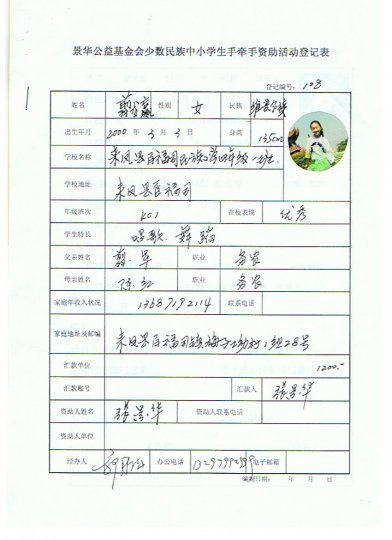 景华公益基金会少数民族中小学生手牵手资助活动登记表
登记编号: 108
姓名 性别 女 民族
出生年月 2000 年 3 月 3 日 身高 135cm
学校名称 来凤县百福司民族小学四年级一班
学校地址 来凤县百福司
年级班次 401 在校表现 优秀
学生特长 唱歌 舞蹈
父亲姓名 职业 务农
母亲姓名 陈红 职业 务农
家庭年收入状况 13687192114 联系电话
家庭地址及邮编 来凤县百福司镇 村 1组28号
汇款单位 1200.-
汇款账号 汇款人 張景华
资助人姓名 張景华 资助人联系电话
资助人单位
经办人 办公电话 电子邮箱
编制日期: 年 月 日